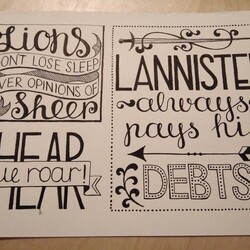 Lions
ONT LOSE SLEEP
VER OPINIONS OF
Sheep
HEAR
roar!
LANNISTE
always
pays hi
DEBTS